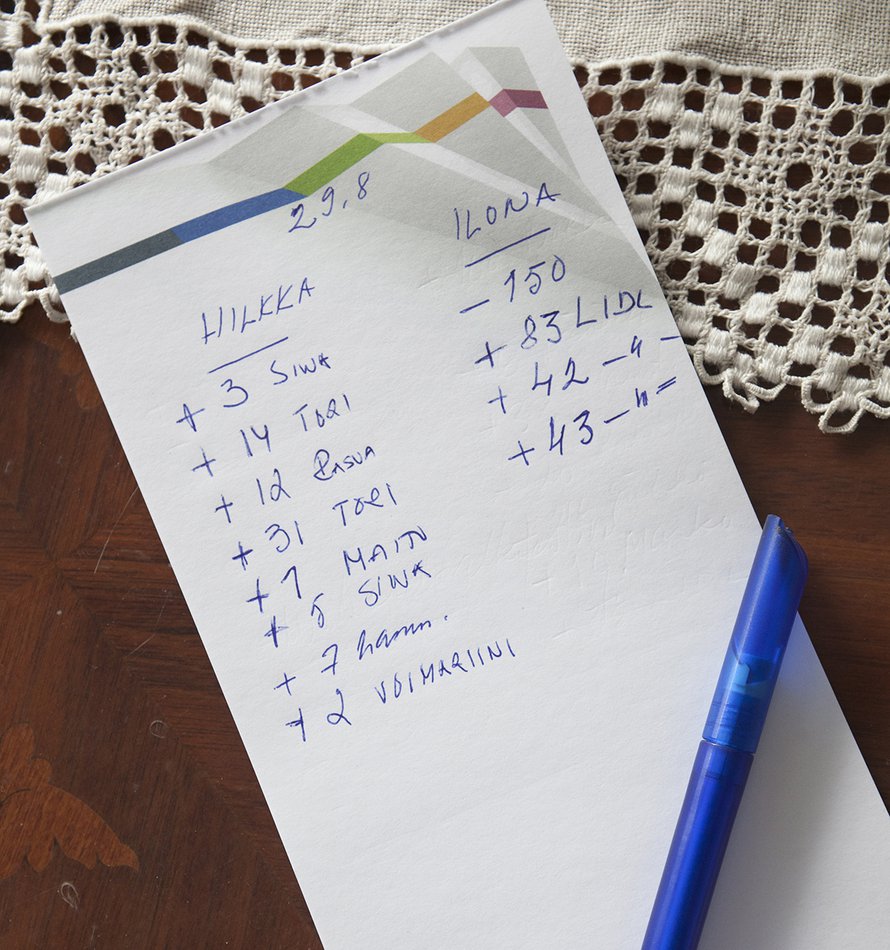 29.8
HILKKA
+ 3 SIWA
+ 14 TORI
+ 12 RASVA
+ 31 TORI
+ 1 MAITO
+ 5 SIWA
+ 7 hamm.
+ 2 VOIMARIINI
ILONA
- 150
+ 83 LIDL
+ 42 - " -
+ 43 - " -